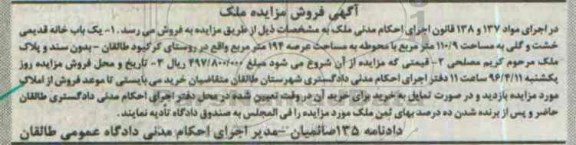 آگهی فروش مزایده ملک
در اجرای مواد ۱۳۷ و ۱۳۸ قانون اجرای احکام مدنی ملک به مشخصات ذیل از طریق مزایده به فروش می رسد. ۱- یک باب خانه قدیمی
خشت و گلی به مساحت ۱۱۰/۹ متر مربع با محوطه به مساحت عرصه ۱۹۴ متر مربع واقع در روستای کرکبود طالقان - بدون سند و پلاک
ملک مرحوم کریم مصلحی ۲- قیمتی که مزایده از آن شروع می شود مبلغ ۴۹۷/۸۰۰/۰۰۰ ریال ۳- تاریخ و محل فروش مزایده روز
یکشنبه ۹۶/۴/۱۱ ساعت ۱۱ دفتر اجرای احکام مدنی دادگستری شهرستان طالقان متقاضیان خرید می بایستی تا موعد فروش از املاک
مورد مزایده بازدید و در صورت تمایل به خرید برای خرید آن در وقت تعیین شده در محل دفتر اجرای احکام مدنی دادگستری طالقان
حاضر و پس از برنده شدن ده درصد بهای ثمن ملک مورد مزایده را فی المجلس به صندوق دادگاه تأدیه نمایند.
دادنامه ۱۳۵ صائمیان - مدیر اجرای احکام مدنی دادگاه عمومی طالقان